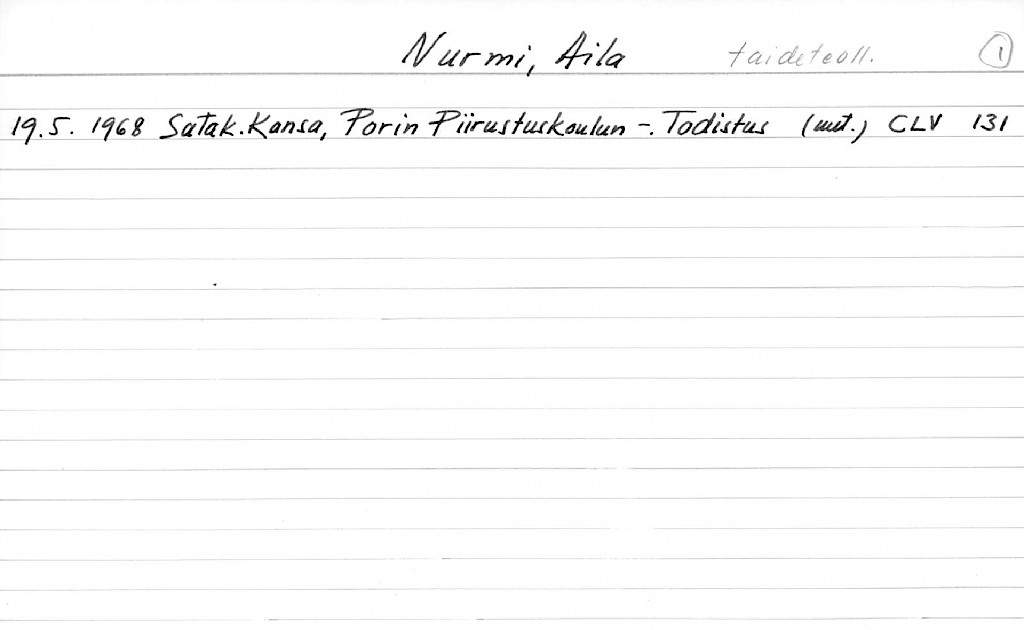 Nurmi, Aila taideteoll. 1
19.5. 1968 Satak. Kansa, Porin Piirustuskoulun -. Todistus (mt.) CLV 131